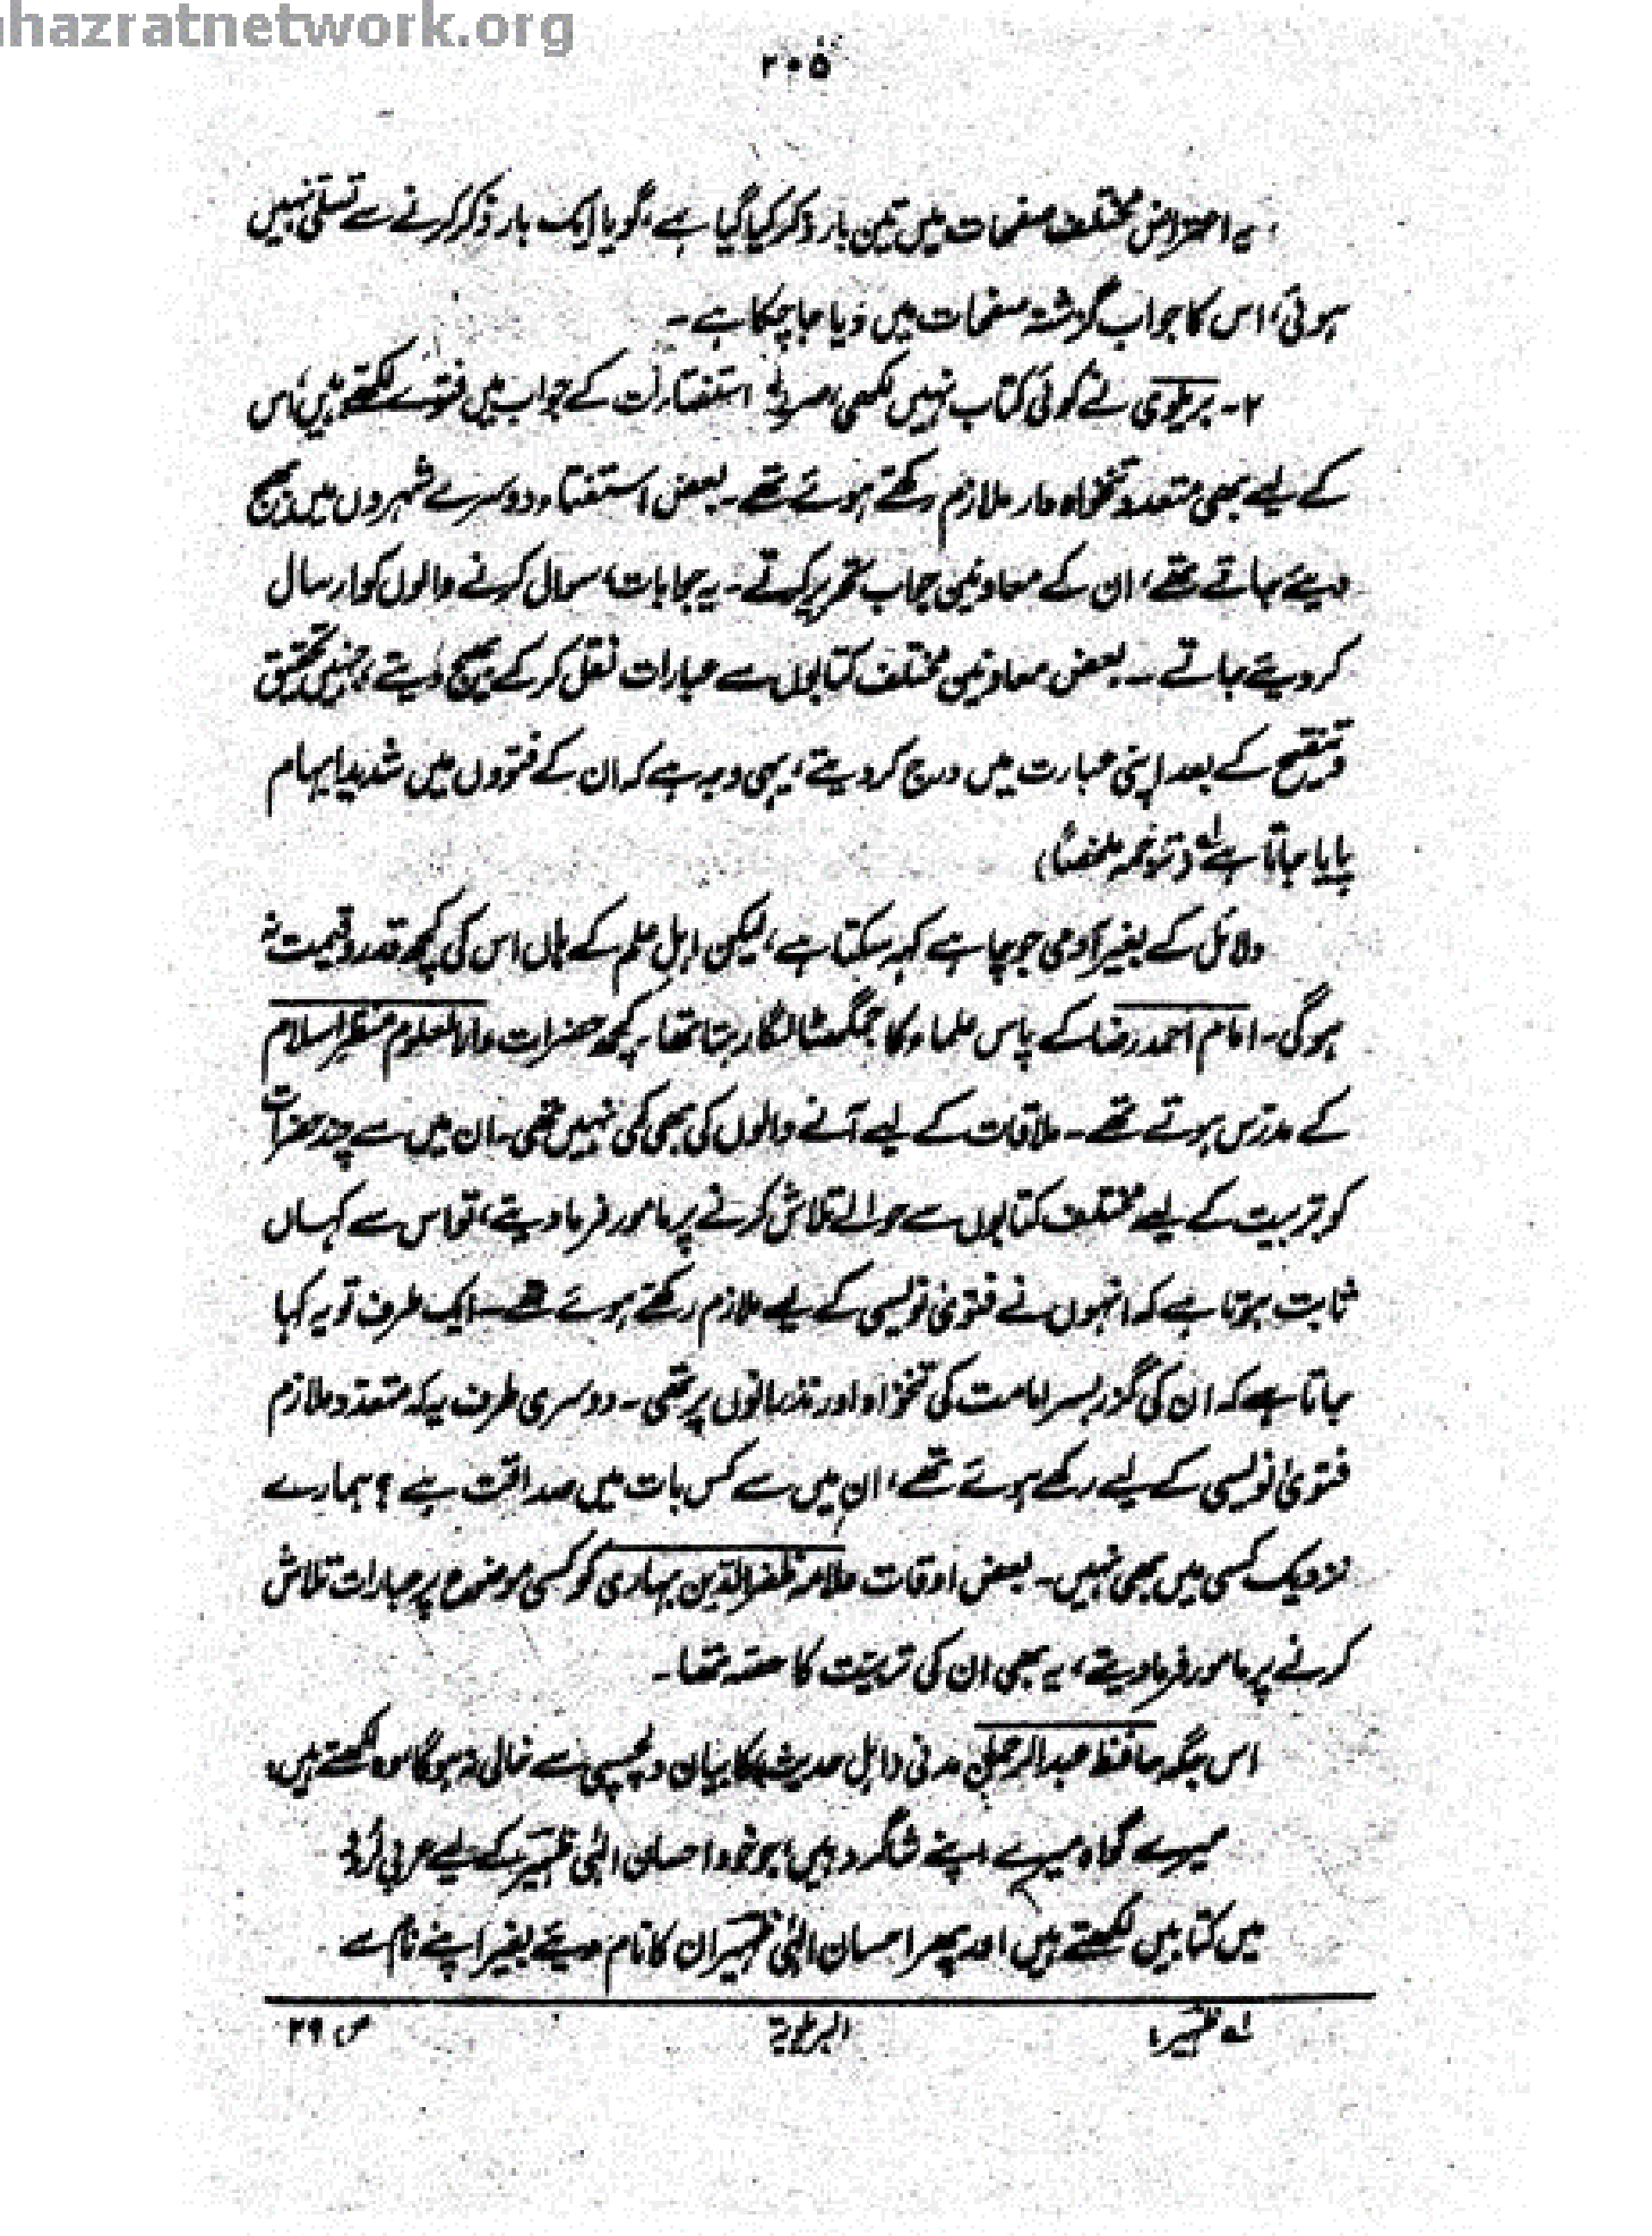 ahazratnetwork.org
۲۰۵
یہ اعتراض مختلف صفحات میں تین بار ذکر کیا گیا ہے، گویا ایک بار ذکر کرنے سے تسلی نہیں
ہوئی، اس کا جواب گزشتہ صفحات میں دیا جا چکا ہے۔
۲۔ بریلوی نے کوئی کتاب نہیں لکھی، صرف استفتاءات کے جواب میں فتوے لکھتے ہیں، اس
کے لیے بھی متعدد تنخواہ دار ملازم رکھے ہوئے تھے۔ بعض استفتاء دوسرے شہروں میں بھیج
دیئے جاتے تھے، ان کے معاونین جواب تحریر کرتے۔ یہ جوابات، سوال کرنے والوں کو ارسال
کر دیئے جاتے۔ بعض معاونین مختلف کتابوں سے عبارات نقل کر کے بھیج دیتے، جنہیں تحقیق
و تنقیح کے بعد اپنی عبارت میں درج کر دیتے، یہی وجہ ہے کہ ان کے فتووں میں شدید ابہام
پایا جاتا ہے لے (ترجمہ ملخصاً)
دلائل کے بغیر آدمی جو چاہے کہہ سکتا ہے، لیکن اہلِ علم کے ہاں اس کی کچھ قدر و قیمت نہ
ہوگی۔ امام احمد رضا کے پاس علماء کا جمگھٹا لگا رہتا تھا، کچھ حضرات دارالعلوم منظرِ اسلام
کے مدرس ہوتے تھے۔ ملاقات کے لیے آنے والوں کی بھی کمی نہیں تھی۔ ان میں سے چند حضرات
کو تربیت کے لیے مختلف کتابوں سے حوالے تلاش کرنے پر مامور فرما دیتے، تو اس سے کہاں
ثابت ہوتا ہے کہ انہوں نے فتویٰ نویسی کے لیے ملازم رکھے ہوئے تھے۔ ایک طرف تو یہ کہا
جاتا ہے کہ ان کی گزر بسر امامت کی تنخواہ اور نذرانوں پر تھی۔ دوسری طرف یہ کہ متعدد ملازم
فتویٰ نویسی کے لیے رکھے ہوئے تھے، ان میں سے کس بات میں صداقت ہے؟ ہمارے
نزدیک کسی میں بھی نہیں۔ بعض اوقات علامہ ظفرالدین بہاری کو کسی موضوع پر عبارات تلاش
کرنے پر مامور فرما دیتے، یہ بھی ان کی تربیت کا حصہ تھا۔
اس جگہ حافظ عبدالرحمٰن مدنی (اہل حدیث) کا بیان دلچسپی سے خالی نہ ہوگا، وہ لکھتے ہیں:
میرے گواہ میرے اپنے شاگرد ہیں، جو خود احسان الٰہی ظہیر کے لیے عربی اردو
میں کتابیں لکھتے ہیں اور پھر احسان الٰہی ظہیر ان کا نام دیئے بغیر اپنے نام سے
لے ظہیر، البریلویة ص ۲۹